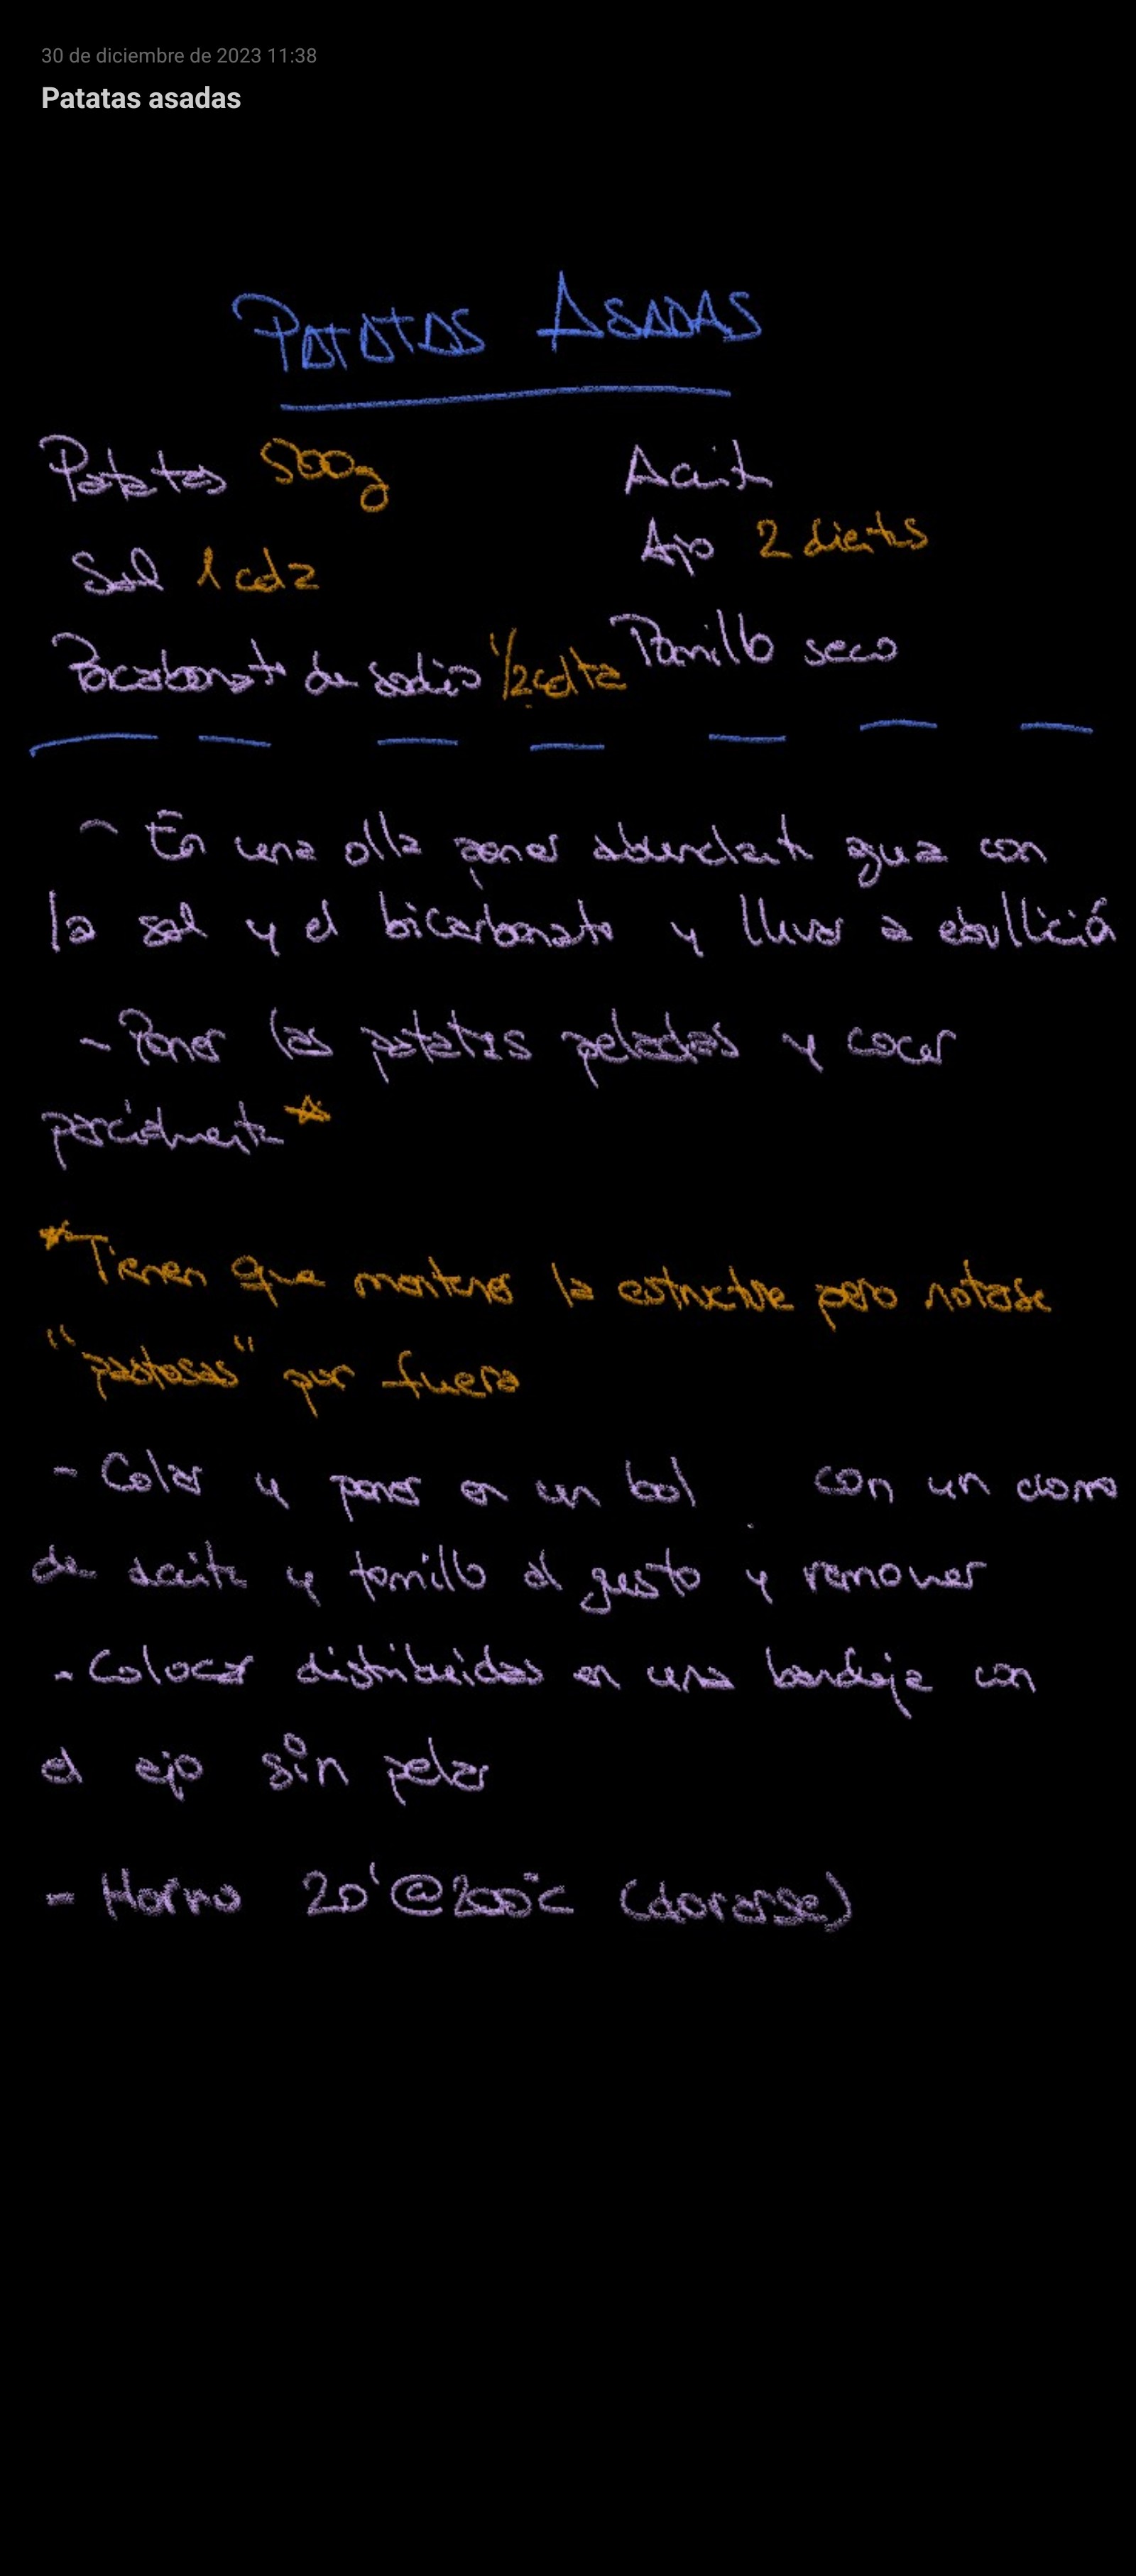 30 de diciembre de 2023 11:38
Patatas asadas
PATATAS ASADAS
Patatas 500g
Aceite
Sal 1 cdz
Ajo 2 dientes
Bicarbonato de sodio 1/2 cdtz
Tomillo seco
- En una olla poner abundante agua con
la sal y el bicarbonato y llevar a ebullición
- Poner las patatas peladas y cocer
parcialmente *
* Tienen que mantener la estructura pero notarse
"pastosas" por fuera
- Colar y poner en un bol con un
de aceite y tomillo al gusto y remover
- Colocar distribuidas en una bandeja con
el ajo sin pelar
- Horno 20' @ 200°C (dorarse)